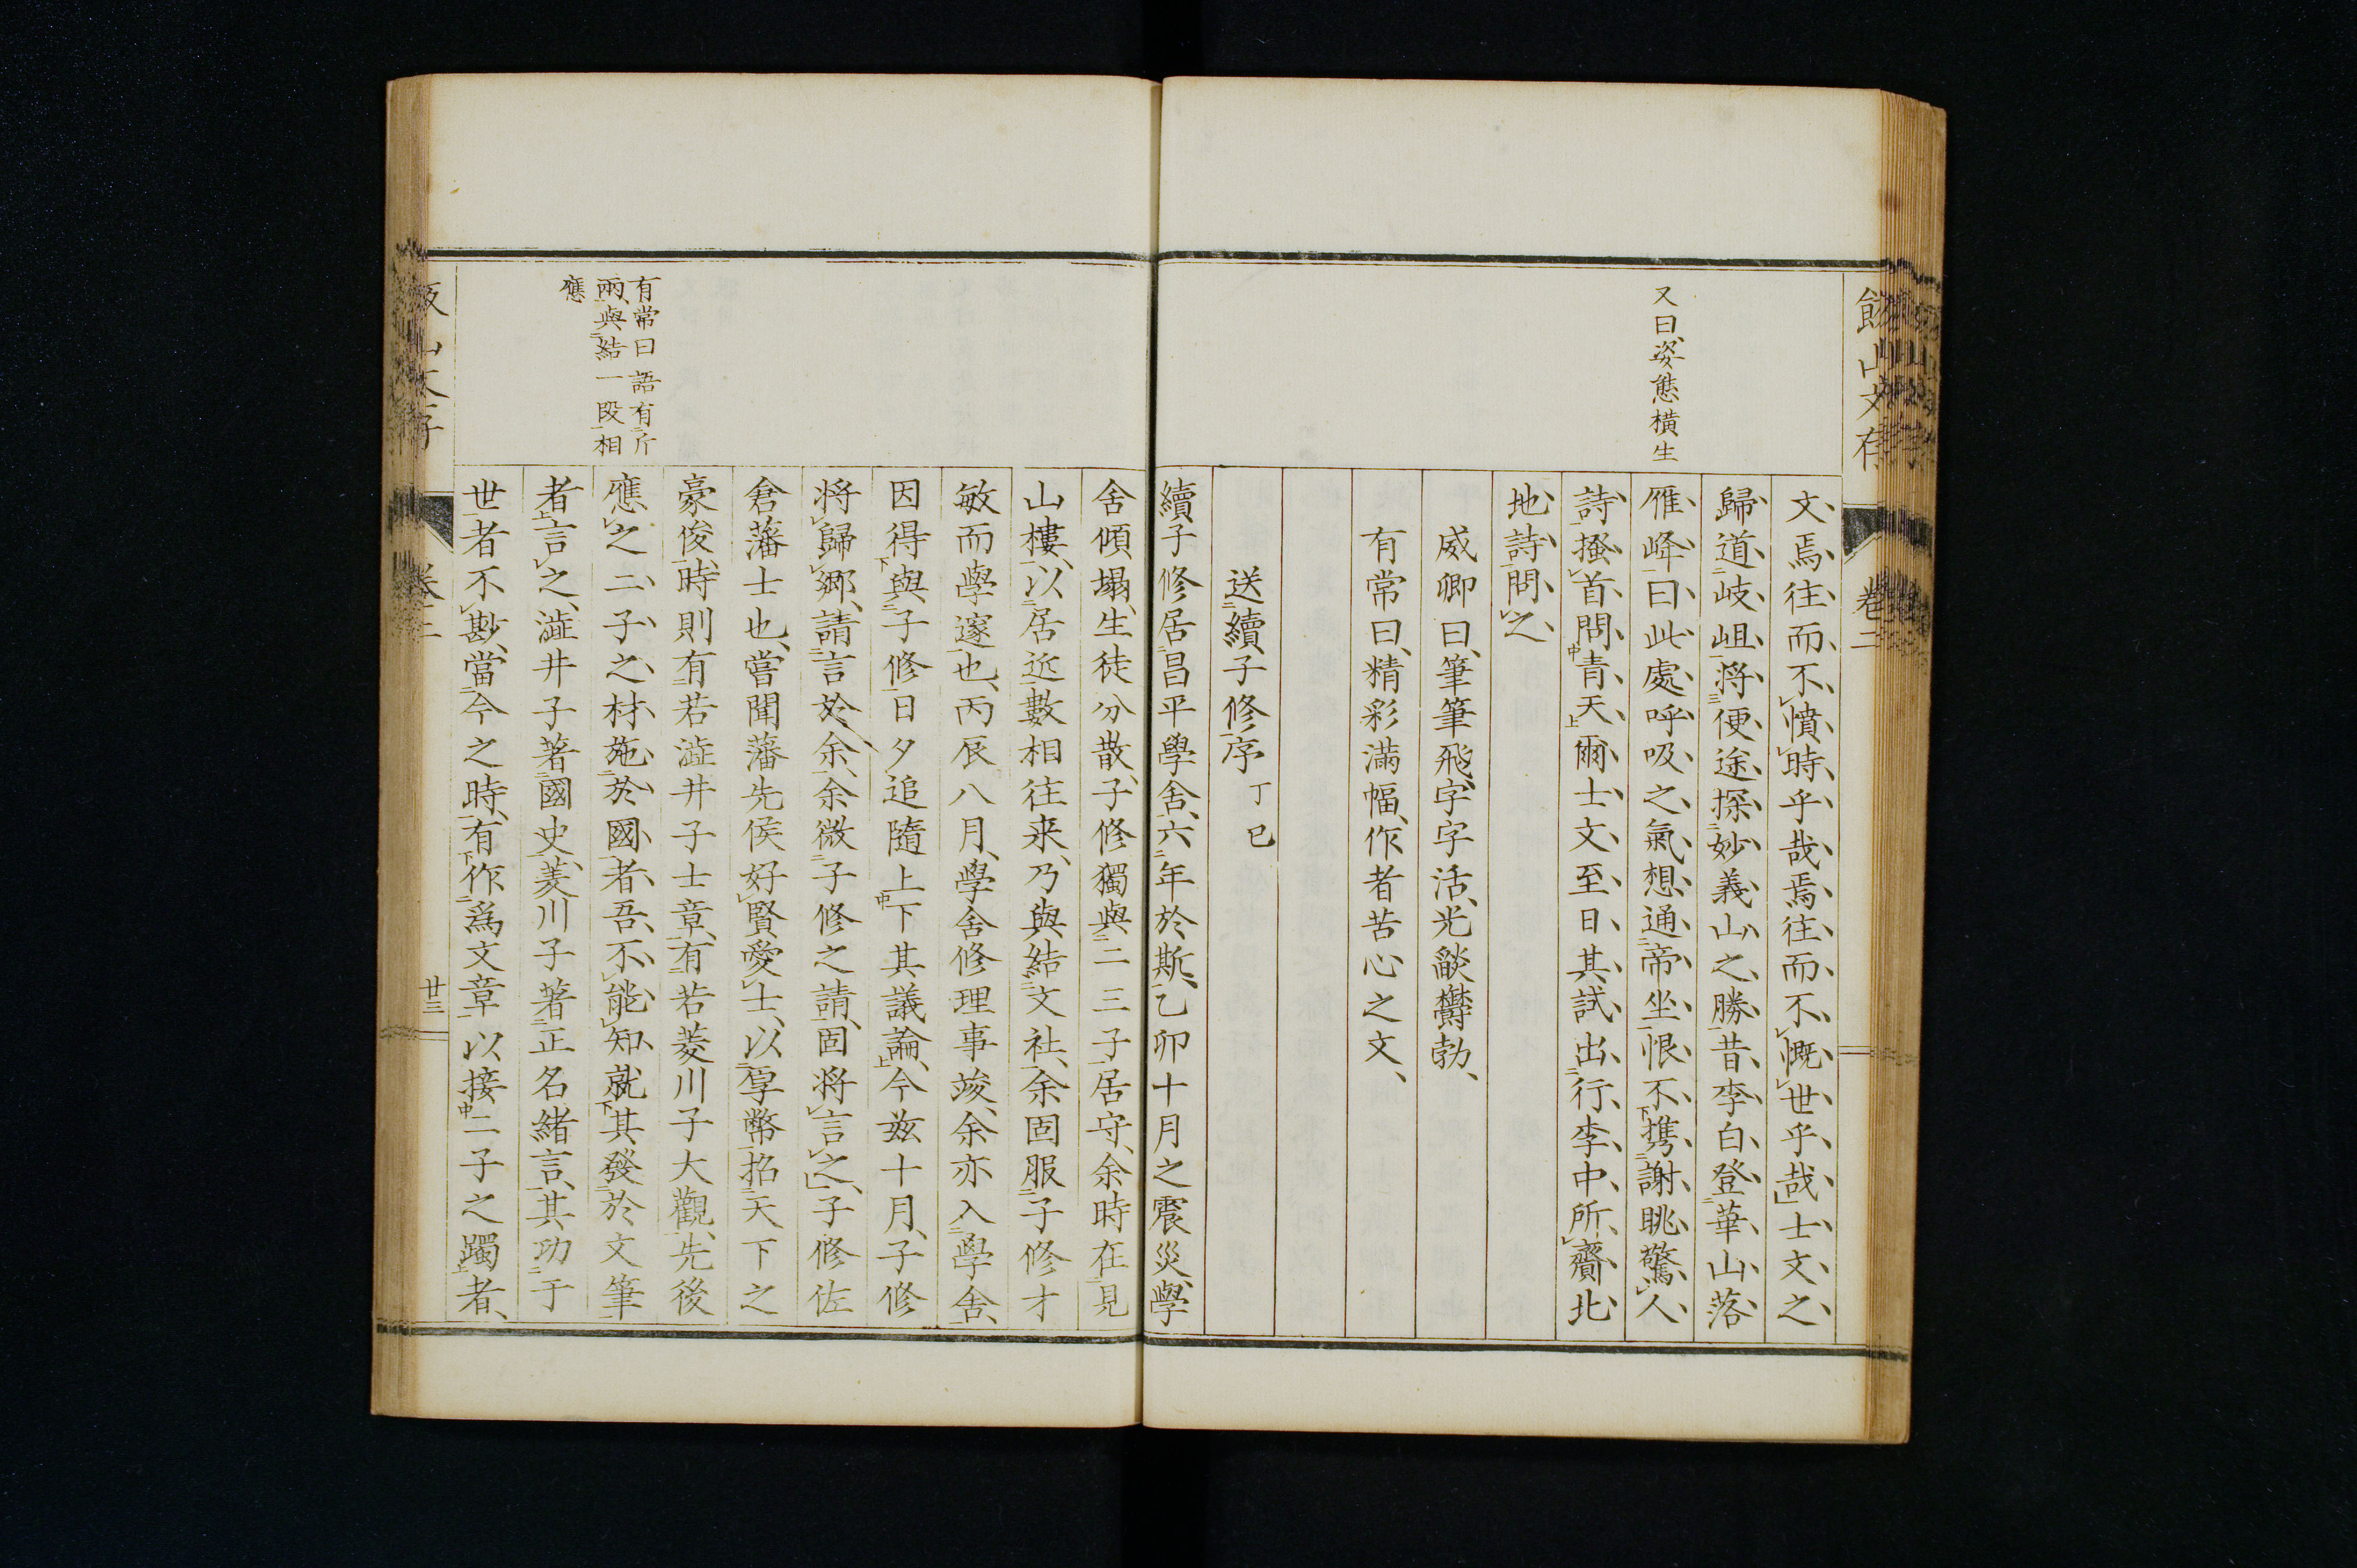 又曰、姿態橫生
文、焉往而不憤時乎哉、焉往而不慨世乎哉、士文之
歸道岐岨、將便途探妙義山之勝、昔李白登華山落
雁峰曰、此處呼吸之氣、想通帝坐、恨不携謝眺驚人
詩、搔首問青天上、爾士文至日、其試出行李中所齎北
地詩問之、
威卿曰、筆筆飛、字字活、光燄欝勃、
有常曰、精彩滿幅、作者苦心之文、
送續子修序 丁巳
續子修居昌平學舍、六年於斯、乙卯十月之震災、學
舍傾塌、生徒分散、子修獨與二三子居守、余時在見
山樓、以居近數相往来、乃與結文社、余固服子修才
敏而學邃也、丙辰八月、學舍修理事竣、余亦入學舍、
因得與子修日夕追隨上下其議論、今茲十月、子修
将歸鄉、請言於余、余微子修之請、固将言之、子修佐
倉藩士也、嘗聞藩先侯好賢愛士、以厚幣招天下之
豪俊、時則有若澁井子士章、有若菱川子大觀、先後
應之、二子之材施於國者、吾不能知、就其發於文筆
者言之、澁井子著國史、菱川子著正名緒言、其功于
世者不尠、當今之時、有作爲文章以接二子之躅者、
有常曰語有斤
兩、與結一段相
應
卷二
廿三